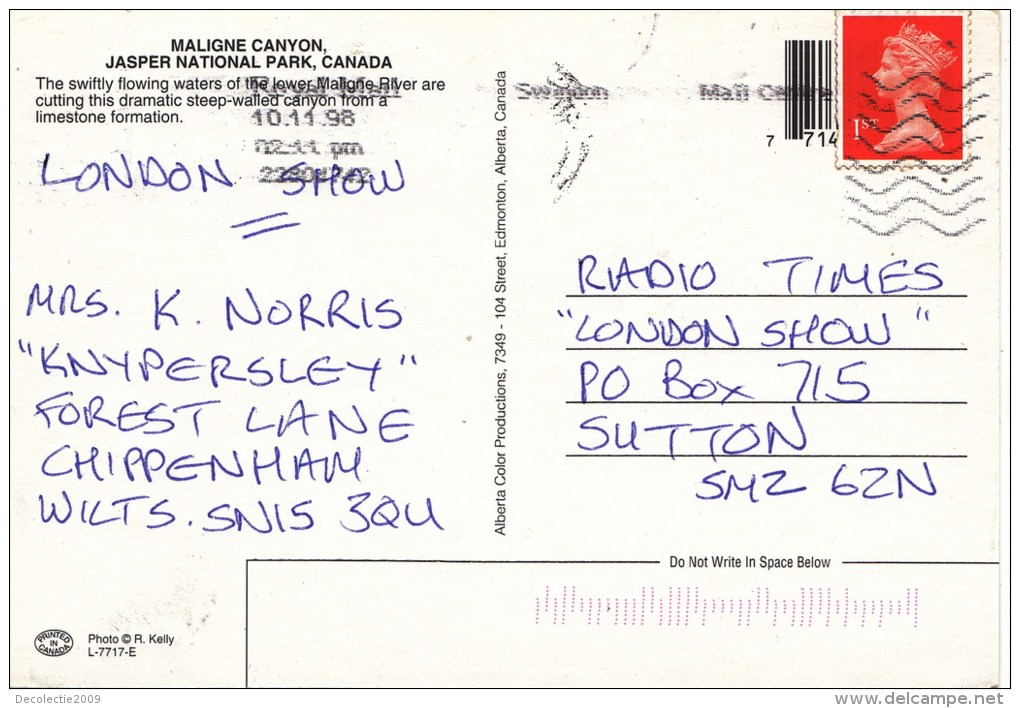 MALIGNE CANYON,
JASPER NATIONAL PARK, CANADA
The swiftly flowing waters of the lower Maligne River are
cutting this dramatic steep-walled canyon from a
limestone formation.
Royal Mail
10.11.98
02:11 pm
LONDON SHOW
MRS. K. NORRIS
"KNYPERSLEY"
FOREST LANE
CHIPPENHAM
WILTS. SN15 3QU
PRINTED
IN
CANADA
Photo © R. Kelly
L-7717-E
Alberta Color Productions, 7349 - 104 Street, Edmonton, Alberta, Canada
Swindon Mail Centre
7 714
1ST
RADIO TIMES
"LONDON SHOW"
PO BOX 715
SUTTON
SM2 6ZN
Do Not Write In Space Below
Decolectie2009
www.delcampe.net